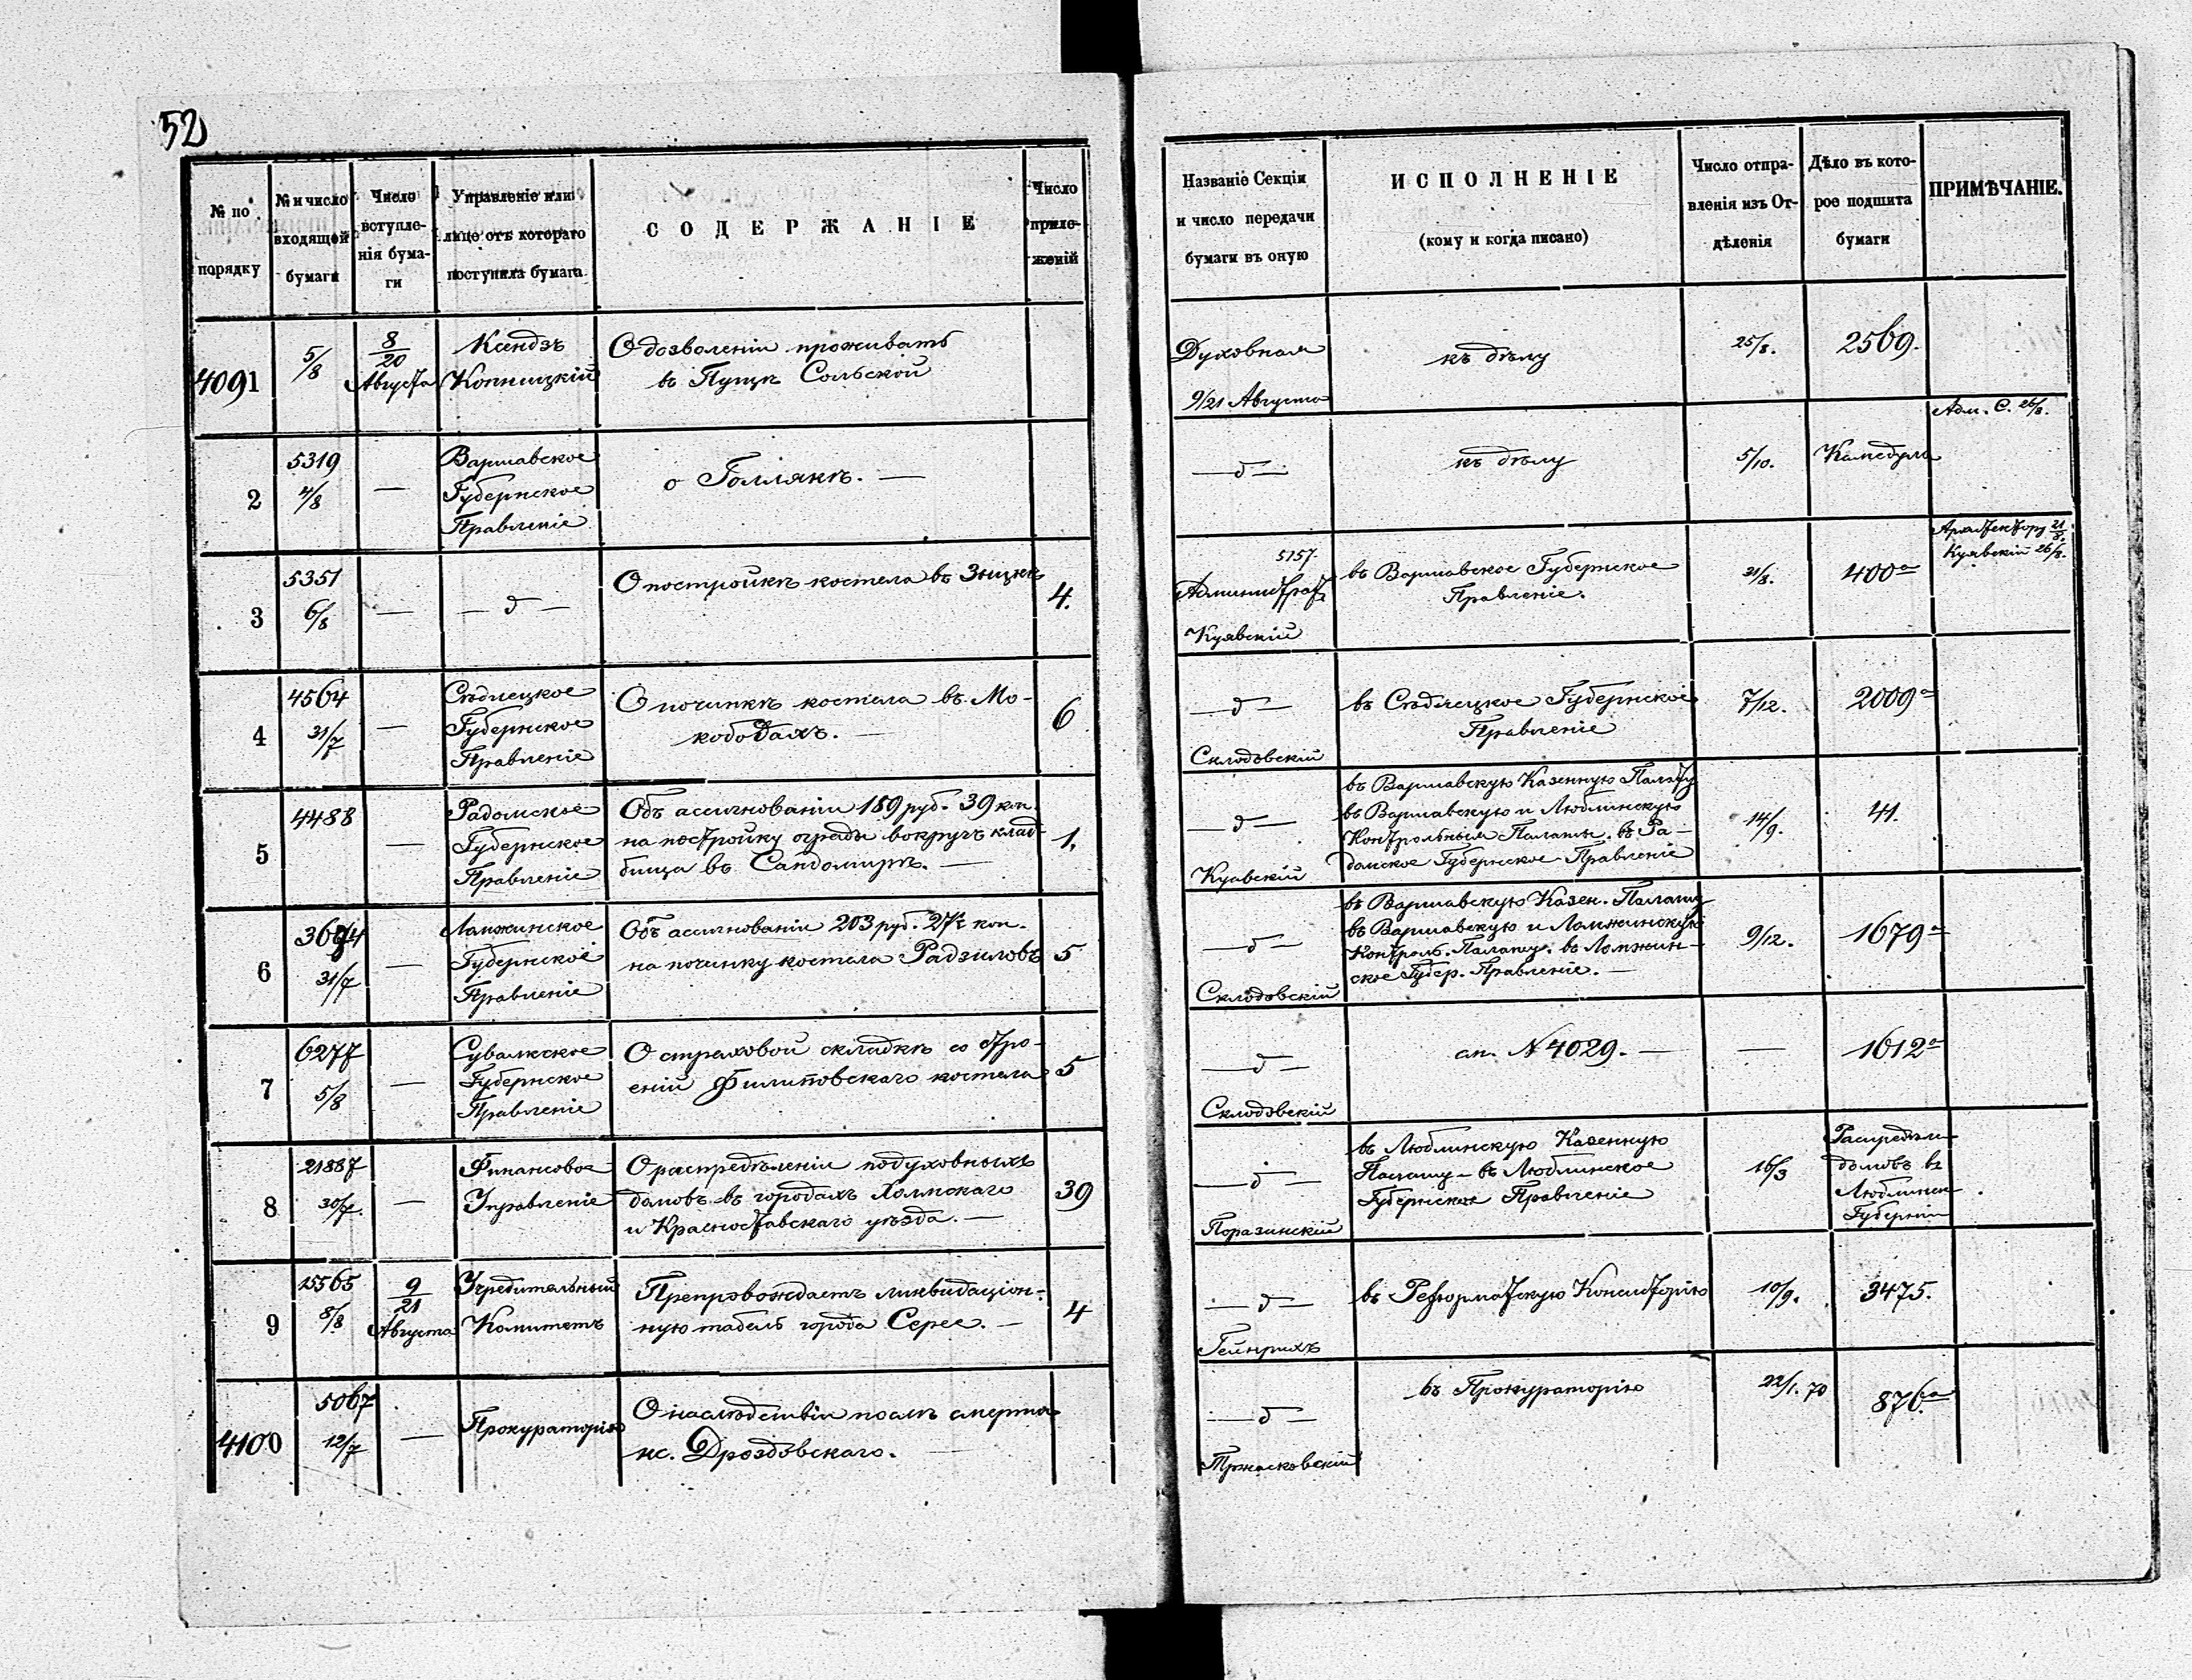 52
№ по порядку
№ и число входящей бумаги
Число вступле-нія бума-ги
Управленіе или лице отъ котораго поступила бумага.
СОДЕРЖАНІЕ
Число прило-женій
Названіе Секціи и число передачи бумаги въ оную
ИСПОЛНЕНІЕ
(кому и когда писано)
Число отпра-вленія изъ От-дѣленія
Дѣло въ кото-рое подшита бумаги
ПРИМѢЧАНІЕ.
4091
5/8
8/20 Августа
Ксендзъ
Копницкій
О дозволеніи проживать
въ Пущѣ Сольской
Духовная
9/21 Августа
къ дѣлу
25/8.
2569.
2
5319
4/8
—
Варшавское
Губернское
Правленіе
о Голлякѣ. —
— д —
къ дѣлу
5/10.
Камедула
Адм. С. 26/8.
3
5351
6/8
—
— д —
О постройкѣ костела въ
4.
5157.
Куявскій
въ Варшавское Губернское
Правленіе.
31/8.
400а
21/8.
Куявскій 26/8.
4
4564
31/7
—
Сѣдлецкое
Губернское
Правленіе
О починкѣ костела въ Мо-
кободахъ. —
6
— д —
Склодовскій
въ Сѣдлецкое Губернское
Правленіе
7/12.
2009а
5
4488
—
Радомское
Губернское
Правленіе
Объ ассигнованіи 189 руб. 39 коп.
на постройку ограды вокругъ клад-
бища въ Сандомирѣ. —
1.
— д —
Куявскій
въ Варшавскую Казенную Палату
въ Варшавскую и Люблинскую
Контрольныя Палаты. въ Ра-
домское Губернское Правленіе
14/9.
41.
6
31/7
—
Ломжинское
Губернское
Правленіе
Объ ассигнованіи 203 руб. 27½ коп.
на починку костела Радзиловѣ
5
— д —
Склодовскій
въ Варшавскую Казен. Палату
въ Варшавскую и Ломжинскую
Контроль. Палату. въ Ломжин-
ское Губер. Правленіе. —
9/12.
1679а
7
6277
5/8
—
Сувалкское
Губернское
Правленіе
О страховой складкѣ со стро-
еній Филиповскаго костела
5
— д —
Склодовскій
сл. N 4029. —
—
1612а
8
21887
30/7.
—
Финансовое
Управленіе
О распредѣленіи подуховныхъ
домовъ въ городахъ Холмскаго
и Красноставскаго уѣзда. —
39
— д —
Поразинскій
въ Люблинскую Казенную
Палату — въ Люблинское
Губернское Правленіе
16/3
Распредѣл.
домовъ въ
Люблинск.
Губерніи
9
25565
8/8
9/21 Августа
Учредительный
Комитетъ
Препровождаетъ ликвидаціон-
ную табель города Серее. —
4
— д —
Гейнрихъ
въ Реформатскую Консисторію
10/9.
3475.
4100
5067
12/7
—
Прокураторія
О наслѣдствіи послѣ смерти
кс. Дроздовскаго. —
— д —
Тржасковскій
въ Прокураторію
22/1. 70
876.а